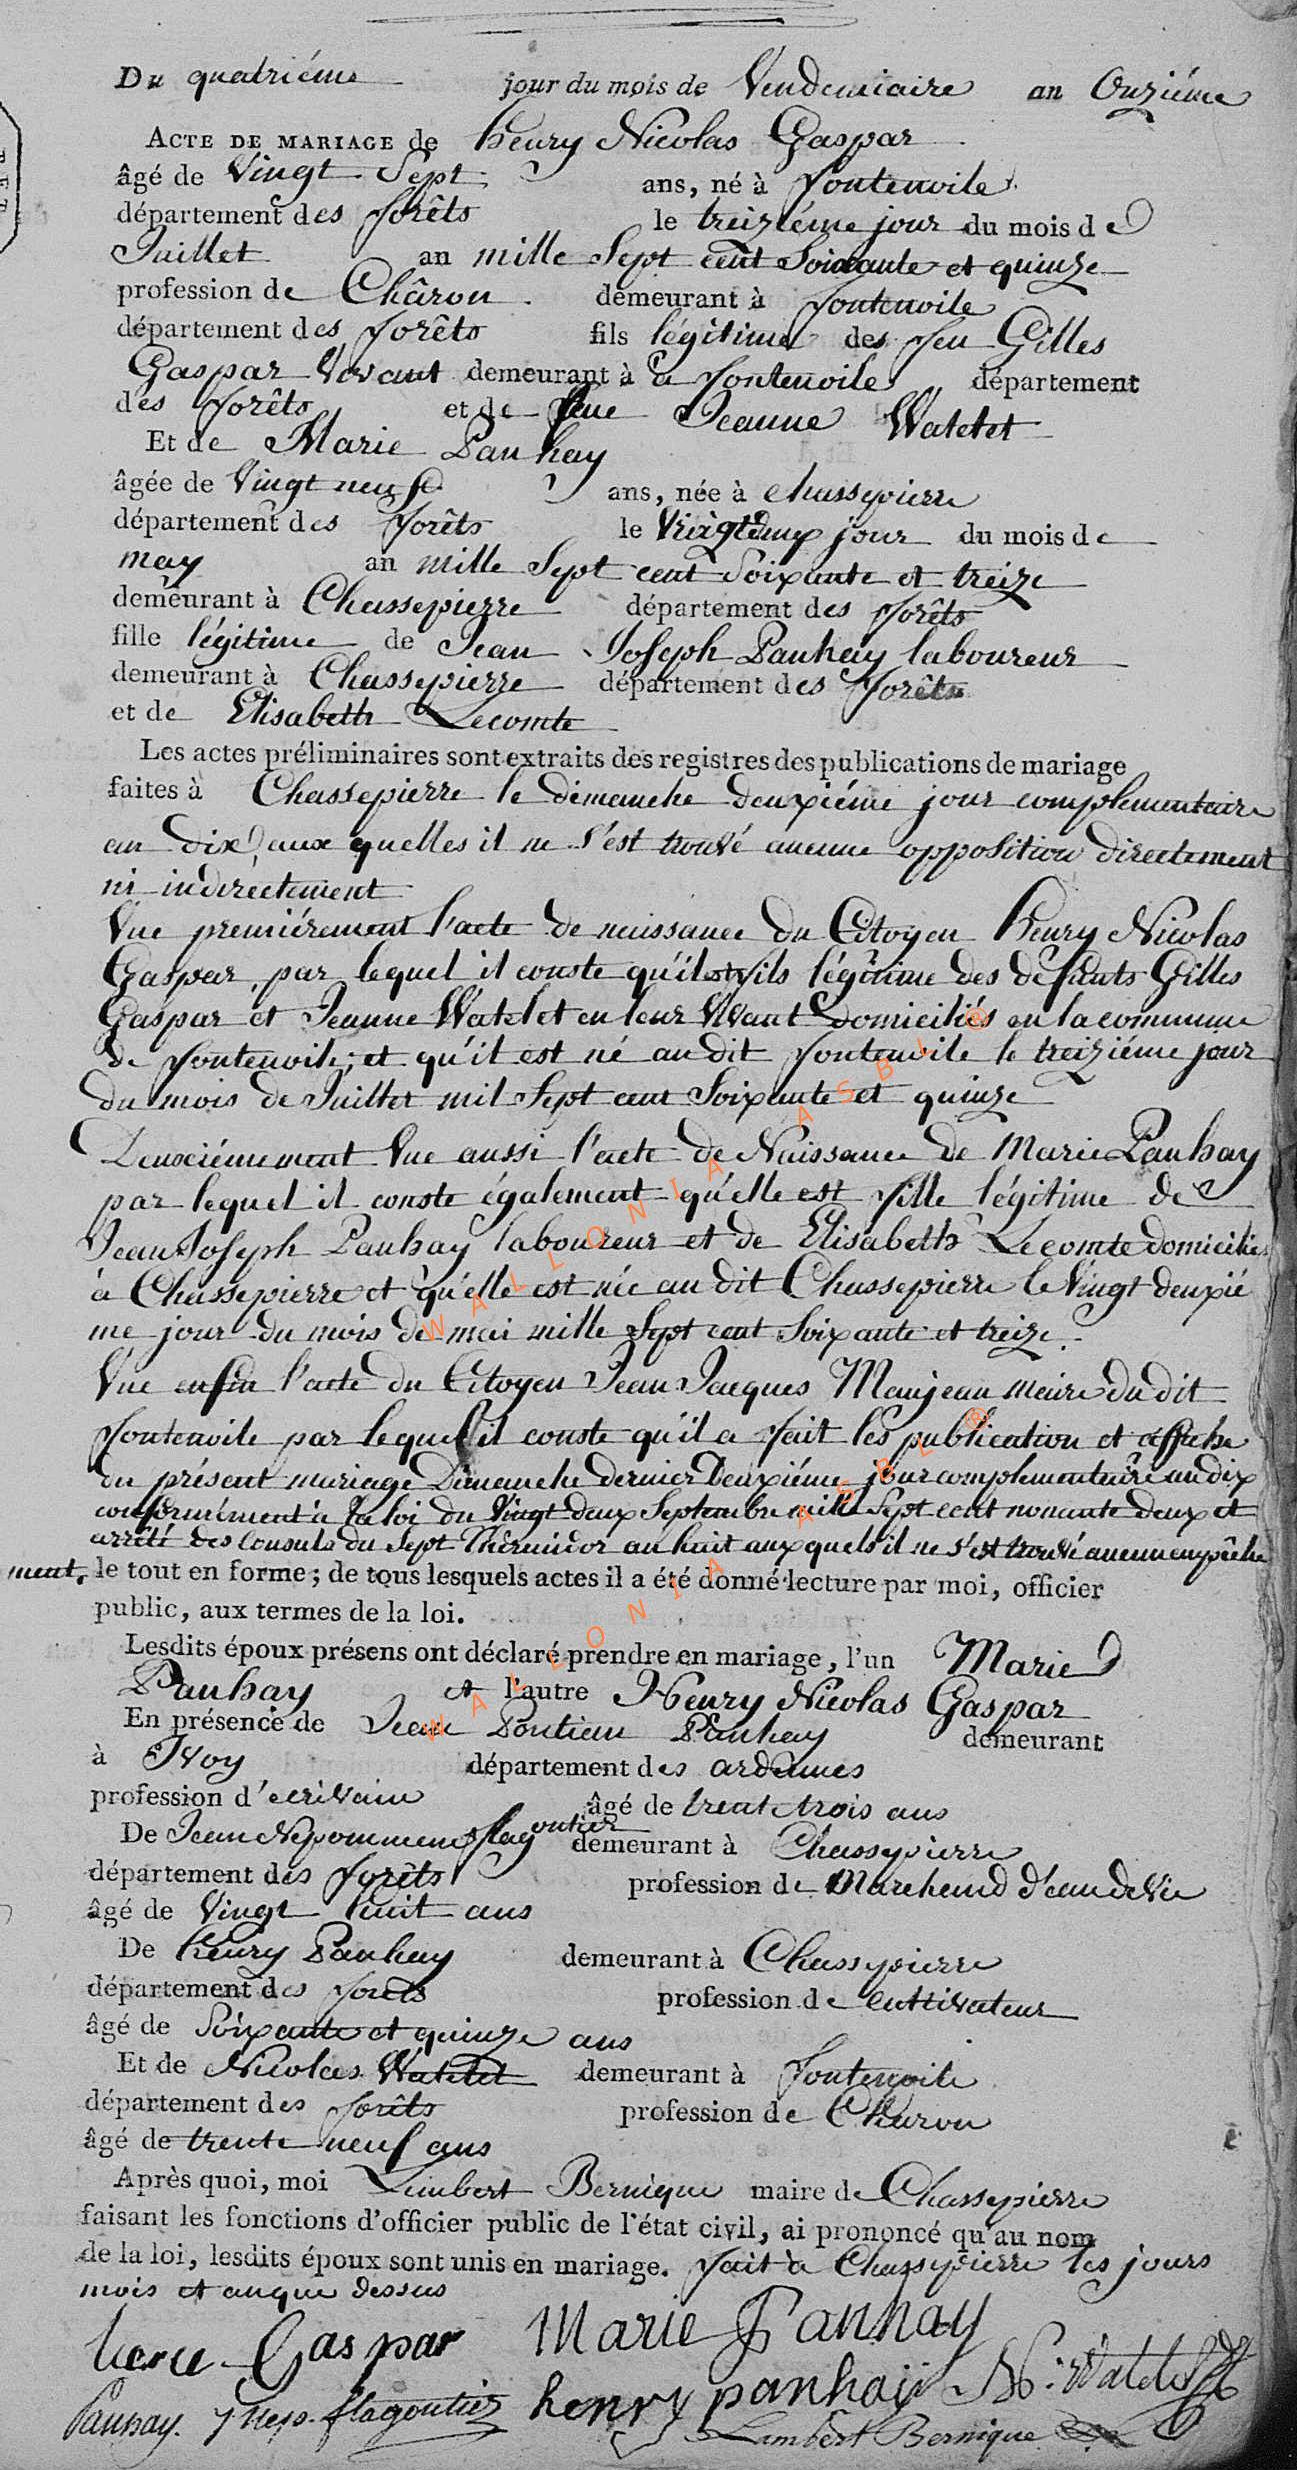 Du quatriéme jour du mois de Vendemiaire an Onziéme
ACTE DE MARIAGE de henry Nicolas Gaspar
âgé de Vingt Sept ans, né à fontenoile
département des forêts le treiziéme jour du mois de
Juillet an mille Sept cent Soixante et quinze
profession de Châron demeurant à fontenoile
département des forêts fils légitime des feu Gilles
Gaspar Vivant demeurant à a fontenoile département
des forêts et de feue Jeanne Watelet
Et de Marie Panhay
âgée de Vingt neuf ans, née à chassepierre
département des forêts le Vingtdeux jour du mois de
may an mille Sept cent Soixante et treize
demeurant à Chassepierre département des forêts
fille légitime de Jean Joseph Panhay laboureur
demeurant à Chassepierre département des forêts
et de Elisabeth Lecomte
Les actes préliminaires sont extraits des registres des publications de mariage
faites à Chassepierre le dimanche deuxiéme jour complementaire
an dix, aux quelles il ne s'est trouvé aucune opposition directement
ni indirectement
Vue premiérement l'acte de naissance du Citoyen henry Nicolas
Gaspar, par lequel il conste qu'il est fils légitime des défunts Gilles
Gaspar et Jeanne Watelet en leur Vivant domiciliés en la commune
de fontenoile; et qu'il est né au dit fontenoile le treiziéme jour
du mois de Juillet mil Sept cent Soixante et quinze
Deuxiémement Vue aussi l'acte de Naissance de Marie Panhay
par lequel il conste également qu'elle est fille légitime de
Jean Joseph Panhay laboureur et de Elisabeth Lecomte domiciliés
à Chassepierre et qu'elle est née au dit Chassepierre le Vingt deuxié
me jour du mois de mai mille Sept cent Soixante et treize.
Vue enfin l'acte du Citoyen Jean Jacques Manjean maire du dit
fontenoile par lequel il conste qu'il a fait les publication et affiche
du présent mariage Dimanche dernier Deuxiéme jour complementaire an dix
conformément à la loi du Vingt deux Septembre mille Sept cent nonante deux et
arrêté des Consuls du Sept Thermidor an huit auxquels il ne s'est trouvé aucun empêche
ment, le tout en forme; de tous lesquels actes il a été donné lecture par moi, officier
public, aux termes de la loi.
Lesdits époux présens ont déclaré prendre en mariage, l'un Marie
Panhay et l'autre Henry Nicolas Gaspar
En présence de Jean Pontien Panhay demeurant
à Ivoy département des ardennes
profession d'ecrivain âgé de trent trois ans
De Jean Nepommene flagoutier demeurant à Chassepierre
département des forêts profession de Marchand d'eau de Vie
âgé de Vingt huit ans
De henry Panhay demeurant à Chassepierre
département des forets profession de cultivateur
âgé de Soixante et quinze ans
Et de Nicolas Watelet demeurant à fontenoile
département des forêts profession de Charon
âgé de trente neuf ans
Après quoi, moi Lambert Bernique maire de Chassepierre
faisant les fonctions d'officier public de l'état civil, ai prononcé qu'au nom
de la loi, lesdits époux sont unis en mariage. fait à Chassepierre les jours
mois et an que dessus
Gaspar Marie Panhay
Panhay. J nep. flagoutier henry panhaÿ N: Watelet
Lambert Bernique
WALLONIA ASBL ®
WALLONIA ASBL ®